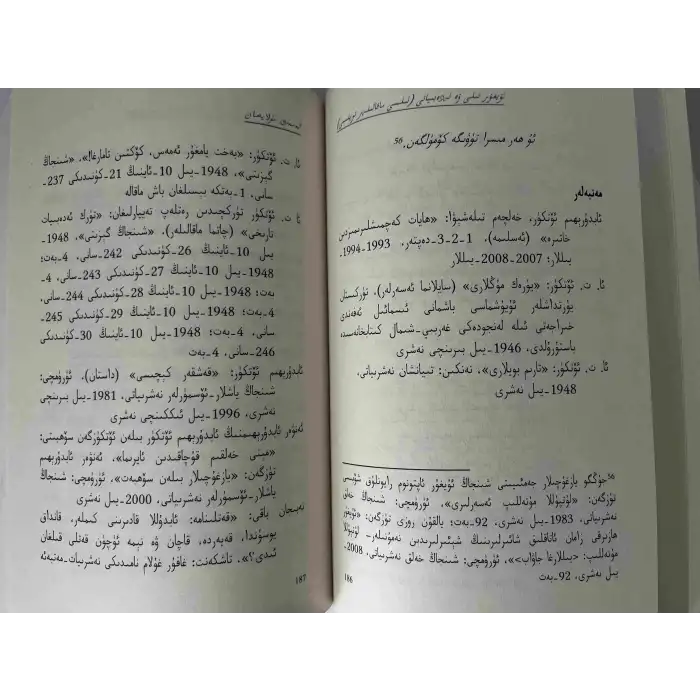 ئۇيغۇر تىلى ۋە ئەدەبىياتى
ئۇ ھەر مىسرا تۈۋىگە كۆمۈلگەن.56
مەنبەلەر
ئابدۇرېھىم ئۆتكۈر، خەلچەم
خاتىرە» (ئەسلىمە)، 1-2-3-دەپتەر، 1993-1994-
يىللار؛ 2007-2008-يىللار
ئا. ت. ئۆتكۈر: «يۈرەك مۇڭلارى» (سايلانما ئەسەرلەر)، تۈركىستان
يۇرتداشلەر ئۇيۇشماسى باشمانى ئىسمائىل ئەفەندى
خىراجەتى ئىلە لەنجودەكى غەربىي-شىمال كىتابخانەسىدە
باستۇرۇلدى، 1946-يىل بىرىنچى نەشرى
ئا. ت. ئۆتكۈر: «تارىم بويلارى»، نەنكىن: تىيانشان نەشرىياتى،
1948-يىل نەشرى
56جۇڭگو يازغۇچىلار جەمئىيىتى شىنجاڭ ئۇيغۇر ئاپتونوم رايونلۇق شۆبىسى
تۈزگەن: «لۇتپۇللا مۇتەللىپ ئەسەرلىرى»، ئۈرۈمچى: شىنجاڭ خەلق
نەشرىياتى، 1983-يىل نەشرى، 92-بەت؛ يالقۇن روزى تۈزگەن: «ئۇيغۇر
ھازىرقى زامان ئاتاقلىق شائىرلىرىدىن نەمۇنىلەر-لۇتپۇللا
مۇتەللىپ: <يىللارغا جاۋاب>»، ئۈرۈمچى: شىنجاڭ خەلق نەشرىياتى، 2008-
يىل نەشرى، 92-بەت
186
ئا. ت. ئۆتكۈر: «بەخت يامغۇر ئەمەس، كۆكتىن تامارغا!»، «شىنجاڭ
گېزىتى»، 1948-يىل 10-ئاينىڭ 21-كۈنىدىكى 237-
سانى، 1-بەتكە بېسىلغان باش ماقالە
ئا. ت. ئۆتكۈر تۈركچىدىن رەتلەپ تەييارلىغان: «تۈرك ئەدەبىيات
تارىخى» (چاتما ماقالىلەر)، «شىنجاڭ گېزىتى»، 1948-
يىل 10-ئاينىڭ 26-كۈنىدىكى 242-سانى، 4-بەت؛
1948-يىل 10-ئاينىڭ 27-كۈنىدىكى 243-سانى، 4-
بەت؛ 1948-يىل 10-ئاينىڭ 28-كۈنىدىكى 244-سانى،
4-بەت؛ 1948-يىل 10-ئاينىڭ 29-كۈنىدىكى 245-
سانى، 4-بەت؛ 1948-يىل 10-ئاينىڭ 30-كۈنىدىكى
246-سانى، 4-بەت
ئابدۇرېھىم ئۆتكۈر: «قەشقەر كېچىسى» (داستان)، ئۈرۈمچى:
شىنجاڭ ياشلار-ئۆسمۈرلەر نەشرىياتى، 1981-يىل بىرىنچى
نەشرى، 1996-يىل ئىككىنچى نەشرى
ئەنۋەر ئابدۇرېھىمنىڭ ئابدۇرېھىم ئۆتكۈر بىلەن ئۆتكۈزگەن سۆھبىتى:
«مېنى خەلقىم قۇچاقىدىن ئايرىما»، ئەنۋەر ئابدۇرېھىم
تۈزگەن: «يازغۇچىلار بىلەن سۆھبەت»، ئۈرۈمچى: شىنجاڭ
ياشلار-ئۆسمۈرلەر نەشرىياتى، 2000-يىل نەشرى
نەبىجان باقى: «قەتلنامە: ئابدۇللا قادىرىنى كىملەر، قانداق
يوسۇندا، قەيەردە، قاچان ۋە نېمە ئۈچۈن قەتلى قىلغان
ئىدى؟»، تاشكەنت: غافۇر غۇلام نامىدىكى نەشرىيات-مەتبەئە
187